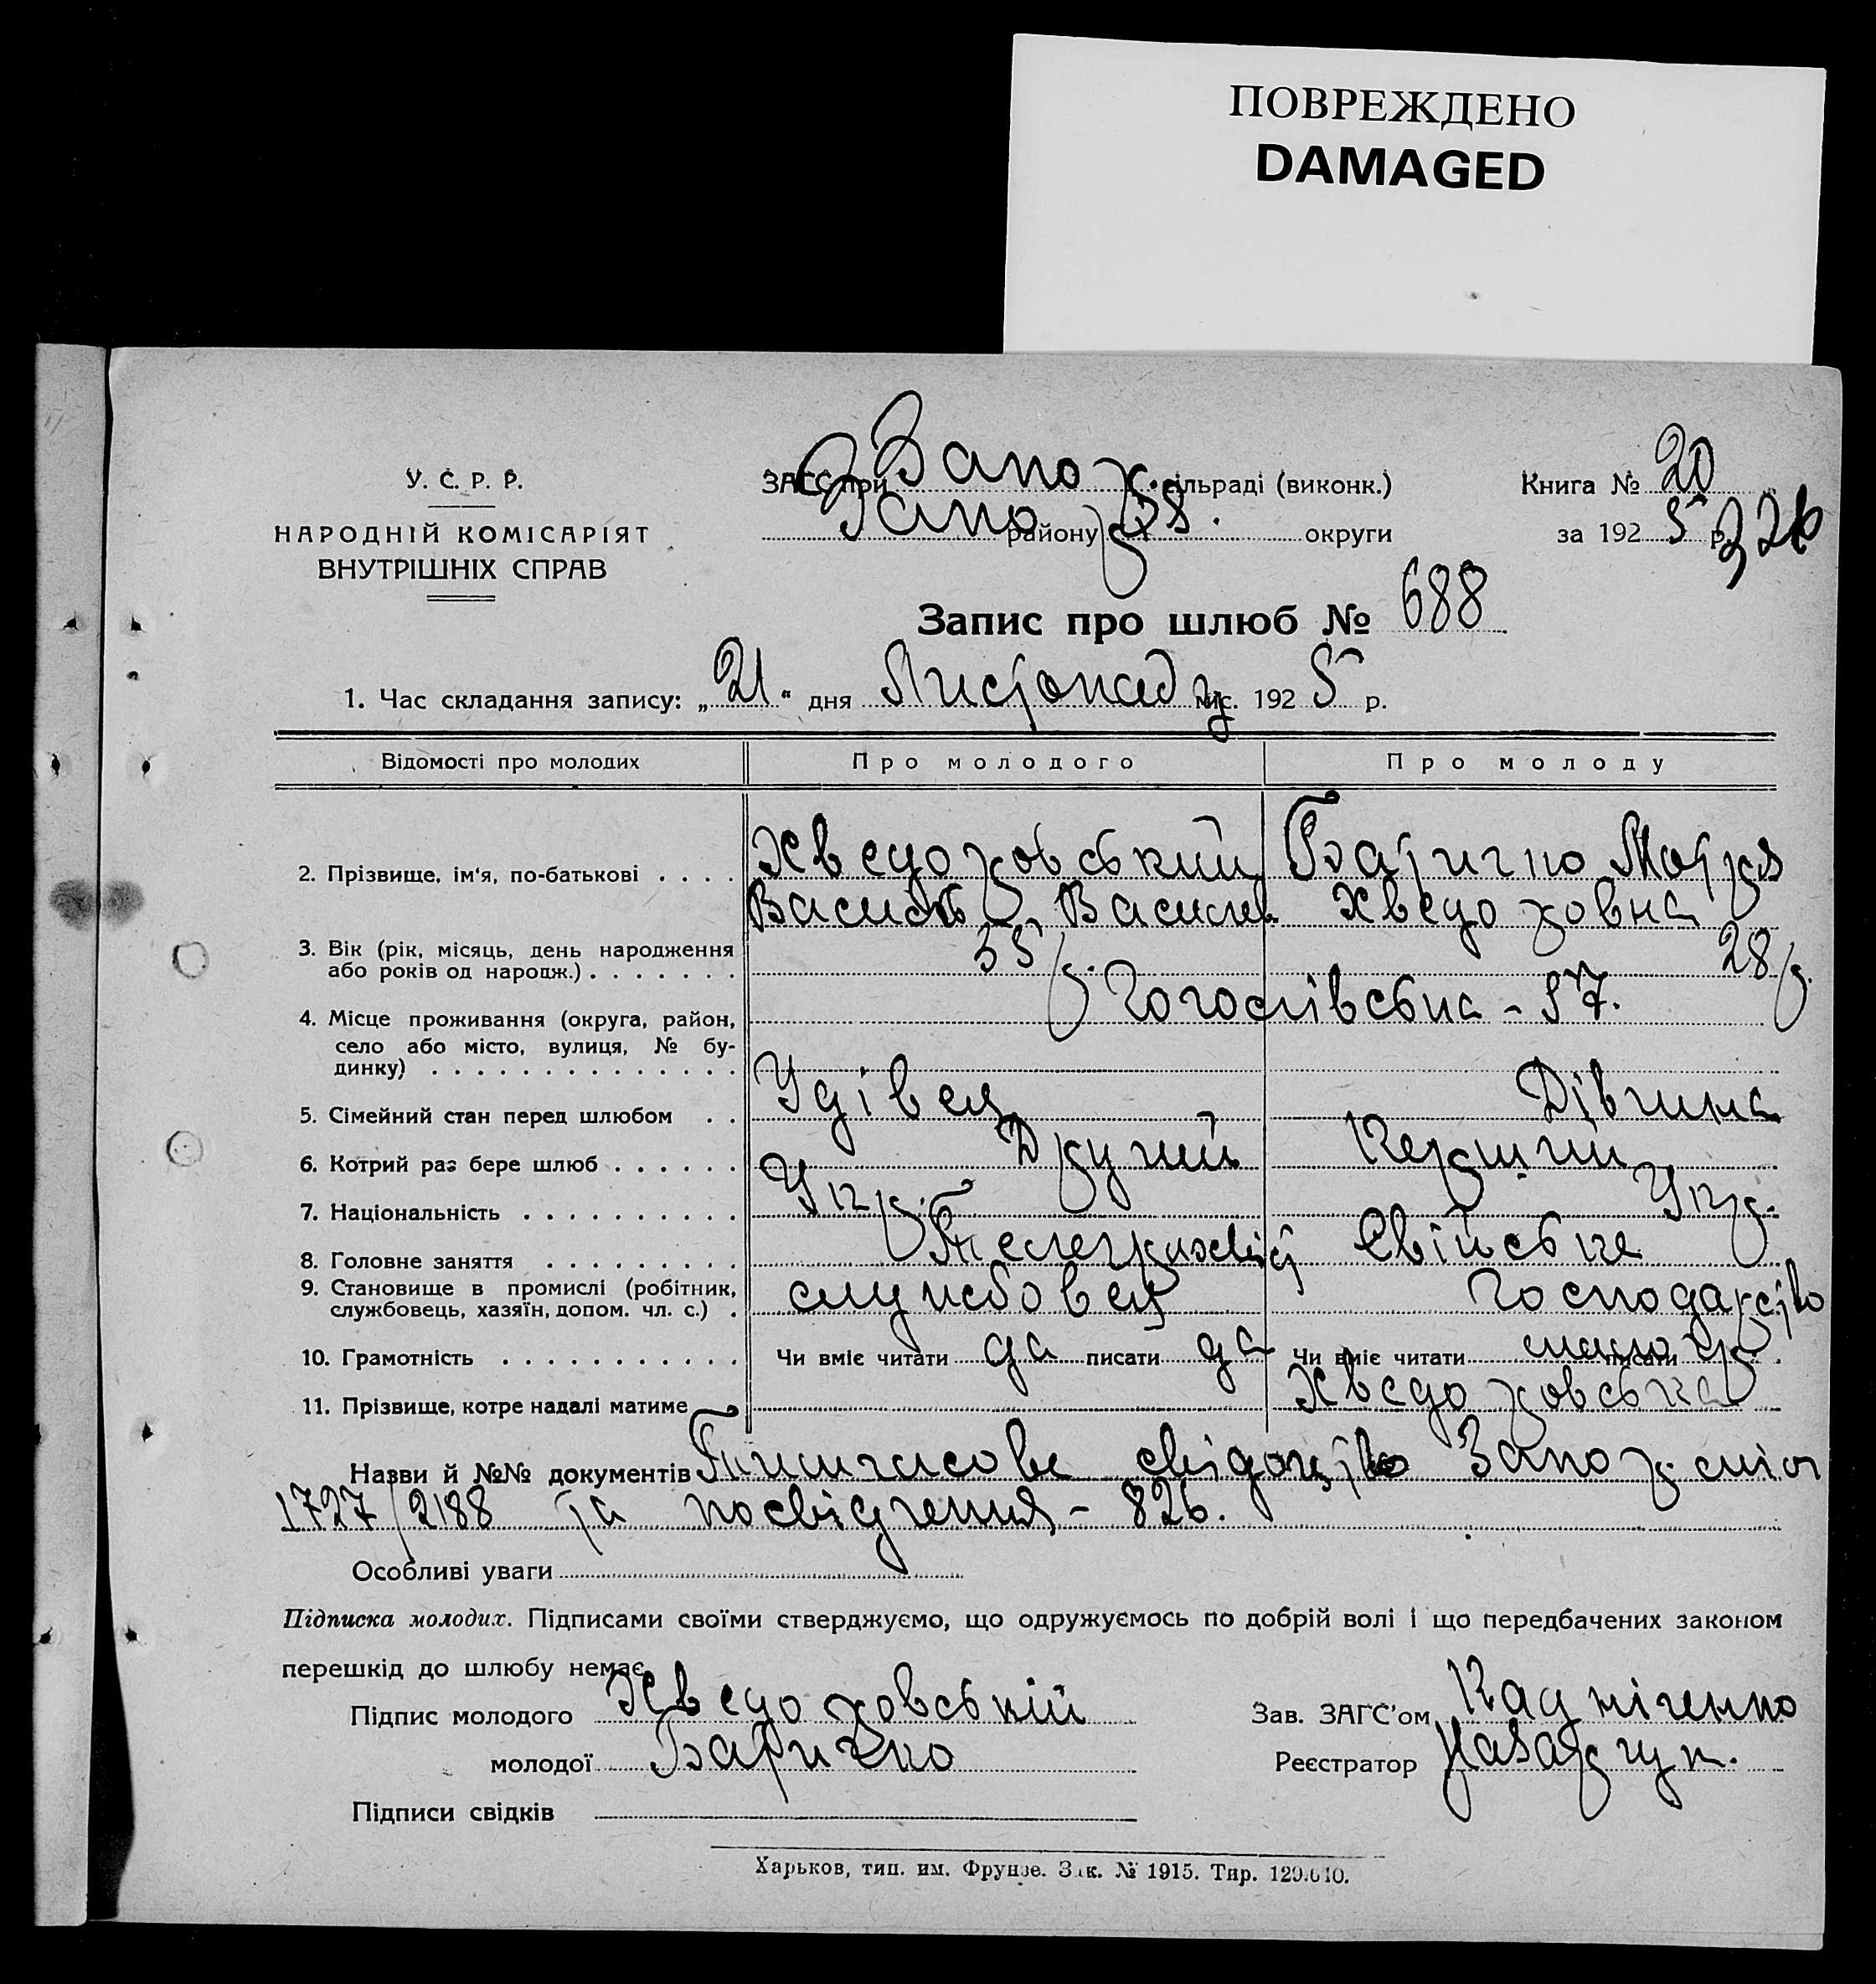 ПОВРЕЖДЕНО
DAMAGED
У. С. Р. Р.
НАРОДНІЙ КОМІСАРІЯТ
ВНУТРІШНІХ СПРАВ
ЗАГС при Запор. сільраді (виконк.)
Запор. району округи
Книга № 20
за 1925 р. 326
Запис про шлюб № 688
1. Час складання запису: „21“ дня Листопаду міс. 1925 р.
Відомості про молодих Про молодого Про молоду
2. Прізвище, ім'я, по-батькові . . . . Хведоровський Батично Мотря
Василь Василев. Хведоровна
3. Вік (рік, місяць, день народження 35 р. 28 р.
або років од народж.) . . . . . . .
4. Місце проживання (округа, район, Гоголівська - 57.
село або місто, вулиця, № бу-
динку) . . . . . . . . . . . . . .
5. Сімейний стан перед шлюбом . . Удівец Дівчина
6. Котрий раз бере шлюб . . . . . . Другий Перший
7. Національність . . . . . . . . . . Укр. Укр.
8. Головне заняття . . . . . . . . . Телеграхвіст Свійське
9. Становище в промислі (робітник,
службовець, хазяїн, допом. чл. с.) . службовец господарство
10. Грамотність . . . . . . . . . . . Чи вміє читати да писати да Чи вміє читати мало писати
11. Прізвище, котре надалі матиме Хведоровська
Назви й №№ документів Тимчасове свідоцтво Запор.
1727/2188 та посвідчення - 826.
Особливі уваги
Підписка молодих. Підписами своїми стверджуємо, що одружуємось по добрій волі і що передбачених законом
перешкід до шлюбу немає.
Підпис молодого Хведоровській Зав. ЗАГС'ом
молодої Батично Реєстратор Назарчук.
Підписи свідків
Харьков, тип. им. Фрунзе. Зак. № 1915. Тир. 129.610.